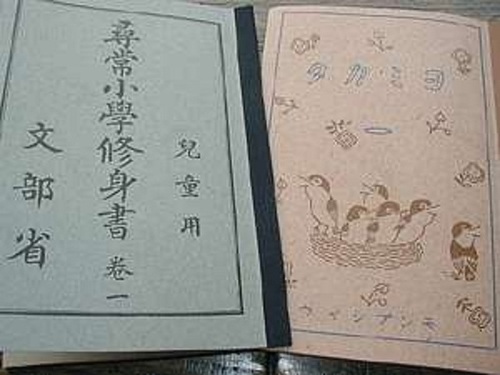 兒童用
尋常小學修身書 卷一
文部省
ヨミカタ
一
モンブシヤウ